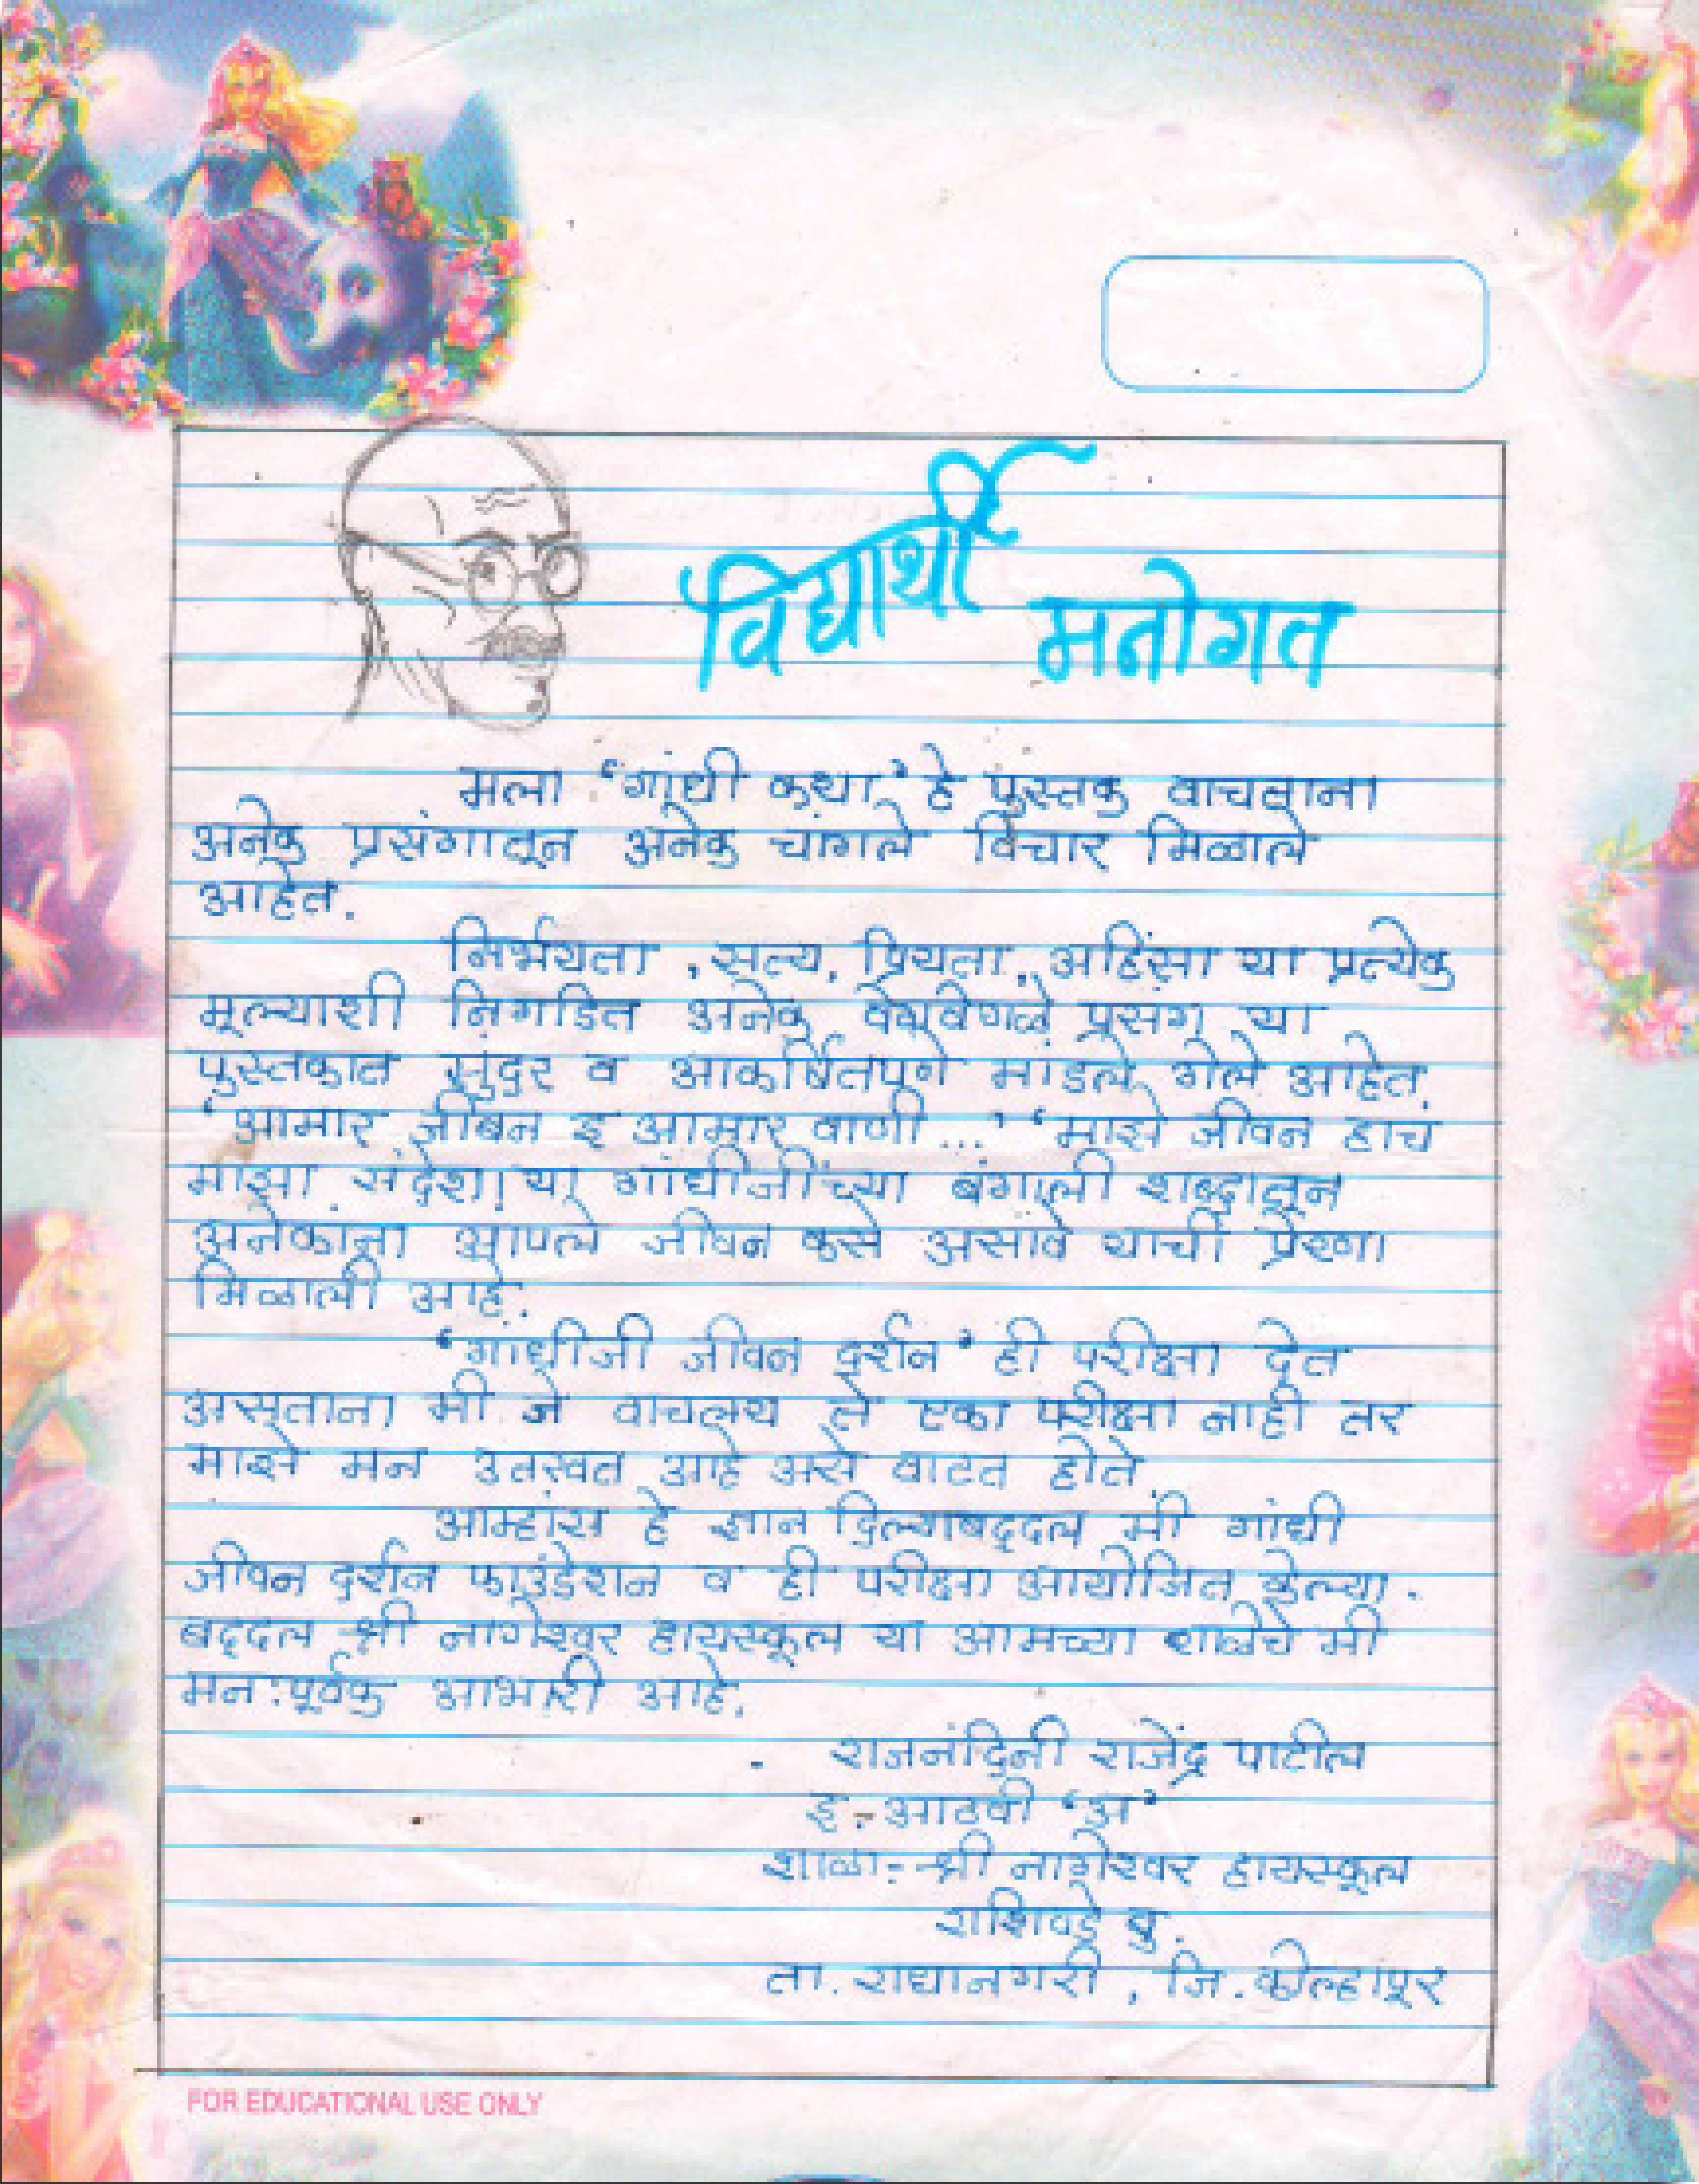 विद्यार्थी मनोगत
मला 'गांधी कथा' हे पुस्तक वाचताना
अनेक प्रसंगातून अनेक चांगले विचार मिळाले
आहेत.
निर्भयता, सत्य, प्रियता, अहिंसा या प्रत्येक
मूल्याशी निगडित अनेक वेगवेगळे प्रसंग या
पुस्तकात सुंदर व आकर्षितपणे मांडले गेले आहेत.
'आमार जीबन इ आमार वाणी...' 'माझे जीवन हाच
माझा संदेश' या गांधीजींच्या बंगाली शब्दातून
अनेकांना आपले जीवन कसे असावे याची प्रेरणा
मिळाली आहे.
'गांधीजी जीवन दर्शन' ही परीक्षा देत
असताना मी जे वाचलय ते एका परीक्षा नाही तर
माझे मन उतरवत आहे असे वाटत होते.
आम्हांस हे ज्ञान दिल्याबद्दल मी गांधी
जीवन दर्शन फाउंडेशन व ही परीक्षा आयोजित केल्या.
बद्दल श्री नागेश्वर हायस्कूल या आमच्या शाळेचे मी
मन:पूर्वक आभारी आहे.
- राजनंदिनी राजेंद्र पाटील
इ.- आठवी 'अ'
शाळा:- श्री नागेश्वर हायस्कूल
राशिवडे बु.
ता. राधानगरी, जि. कोल्हापूर
FOR EDUCATIONAL USE ONLY